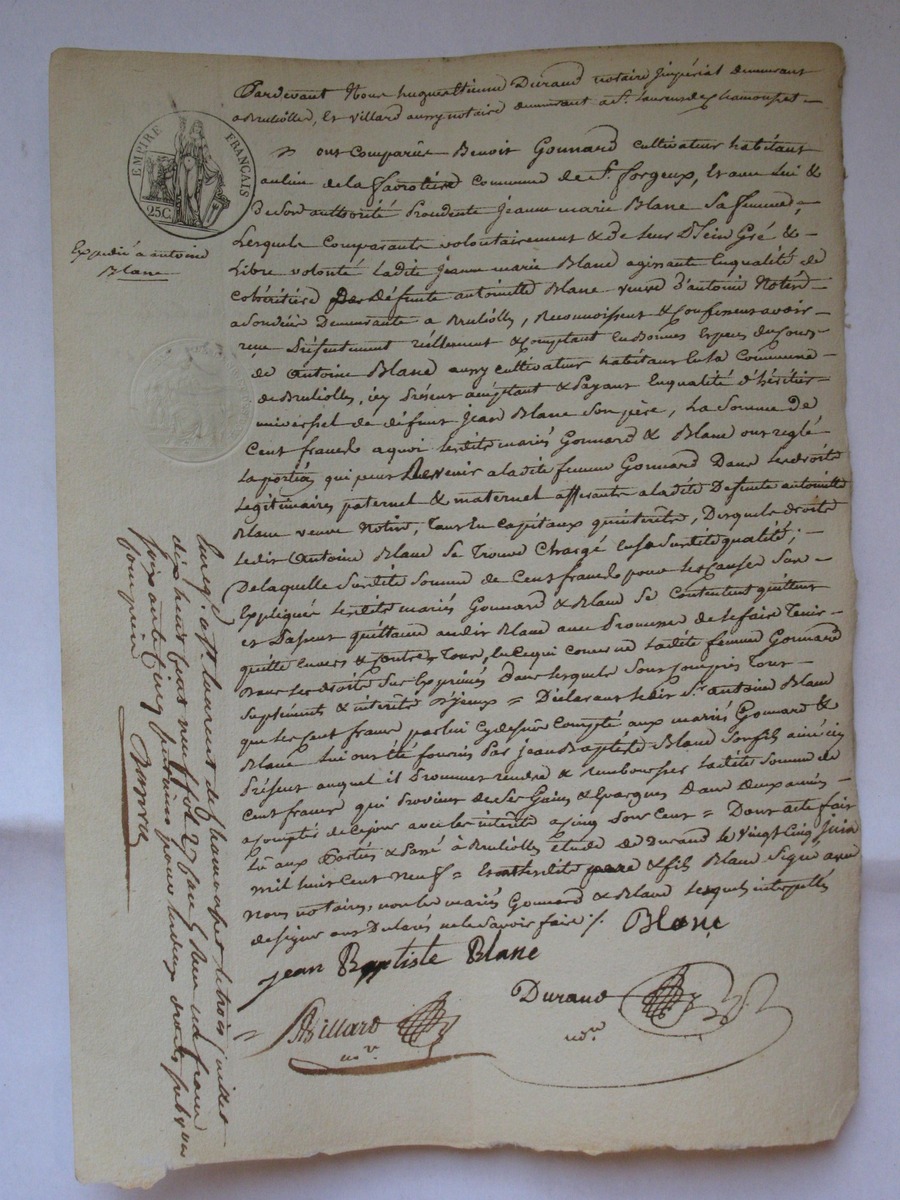 Pardevant Nous hugues Etienne Durand notaire Impérial demeurant
a Brulliolles, et Villard aussy notaire demeurant a St. Laurent de Chamousset
EMPIRE FRANÇAIS
25C.
Expédié a antoine
Blanc
ont Comparûs Benoit Gonnard cultivateur habitant
au lieu de la favrotière commune de St. forgeux, Et avec lui &
De son authorité procédente Jeanne marie Blanc sa femme,
Lesquels Comparants volontairement & De leur Plein Gré &
Libre volonté ladite Jeanne marie Blanc agissant En qualité de
cohéritière De défunte antoinette Blanc veuve D'antoine
a son décès Demeurante a Brulliolles, Reconnoissent & Confessent avoir
reçu Présentement réellement & comptant En Bonnes Espèces du Cours
de Antoine Blanc aussy cultivateur habitant En la Commune
de Brulliolles, icy Présent acceptant & Payant En qualité d'héritier
universel de défunt Jean Blanc Son père, La Somme De
Cent francs a quoi lesdits mariés Gonnard & Blanc ont reglé
La portion qui peut Revenir a ladite femme Gonnard Dans les droits
Légitimaires paternel & maternel afferants a ladite Defunte antoinette
Blanc veuve, tant En capitaux qu'intérêts, Desquels droits
ledit Antoine Blanc Se Trouve Chargé En sa susdite qualité;
De laquelle Susdite Somme de Cent francs pour les causes Sus
Expliquées lesdits mariés Gonnard & Blanc Se Contentent quittent
et Passent quittance audit Blanc avec Promesse de le faire Tenir
quitte Envers & Contre Tous, En ce qui concerne ladite femme Gonnard
Dans les droits Sus Exprimés Dans lesquels Sont Compris Tous
Supléments & interêts D'iceux = Déclarant ledit Sr. Antoine Blanc
que les Cent francs par lui Cy dessus Comptés aux mariés Gonnard &
Blanc Lui ont Eté fournis Par Jean Baptiste Blanc Son fils ainé icy
Présent auquel il Promet rendre & rembourser ladite Somme de
Cent francs qui Provient de Ses Gains & Epargnes Dans Deux années
a compter de ce jour avec les interêts a cinq Pour Cent = Dont acte fait
Lû aux Parties & Passé a Brulliolles Etude de Durand le Vingt Cinq Juin
mil huit cent neuf = Et ont lesdits pere & fils Blanc Signé avec
Nous notaires, non les mariés Gonnard & Blanc Lesquels interpellés
de signer ont Déclarés ne le Savoir faire ./.
Blanc
jean Baptiste Blanc
Durand
nore
Villard
nore
Enreg. a St. Laurent de Chamousset le trois juillet
dix huit cent neuf fol.
soixante cinq centimes pour les deux droits subvon
compris